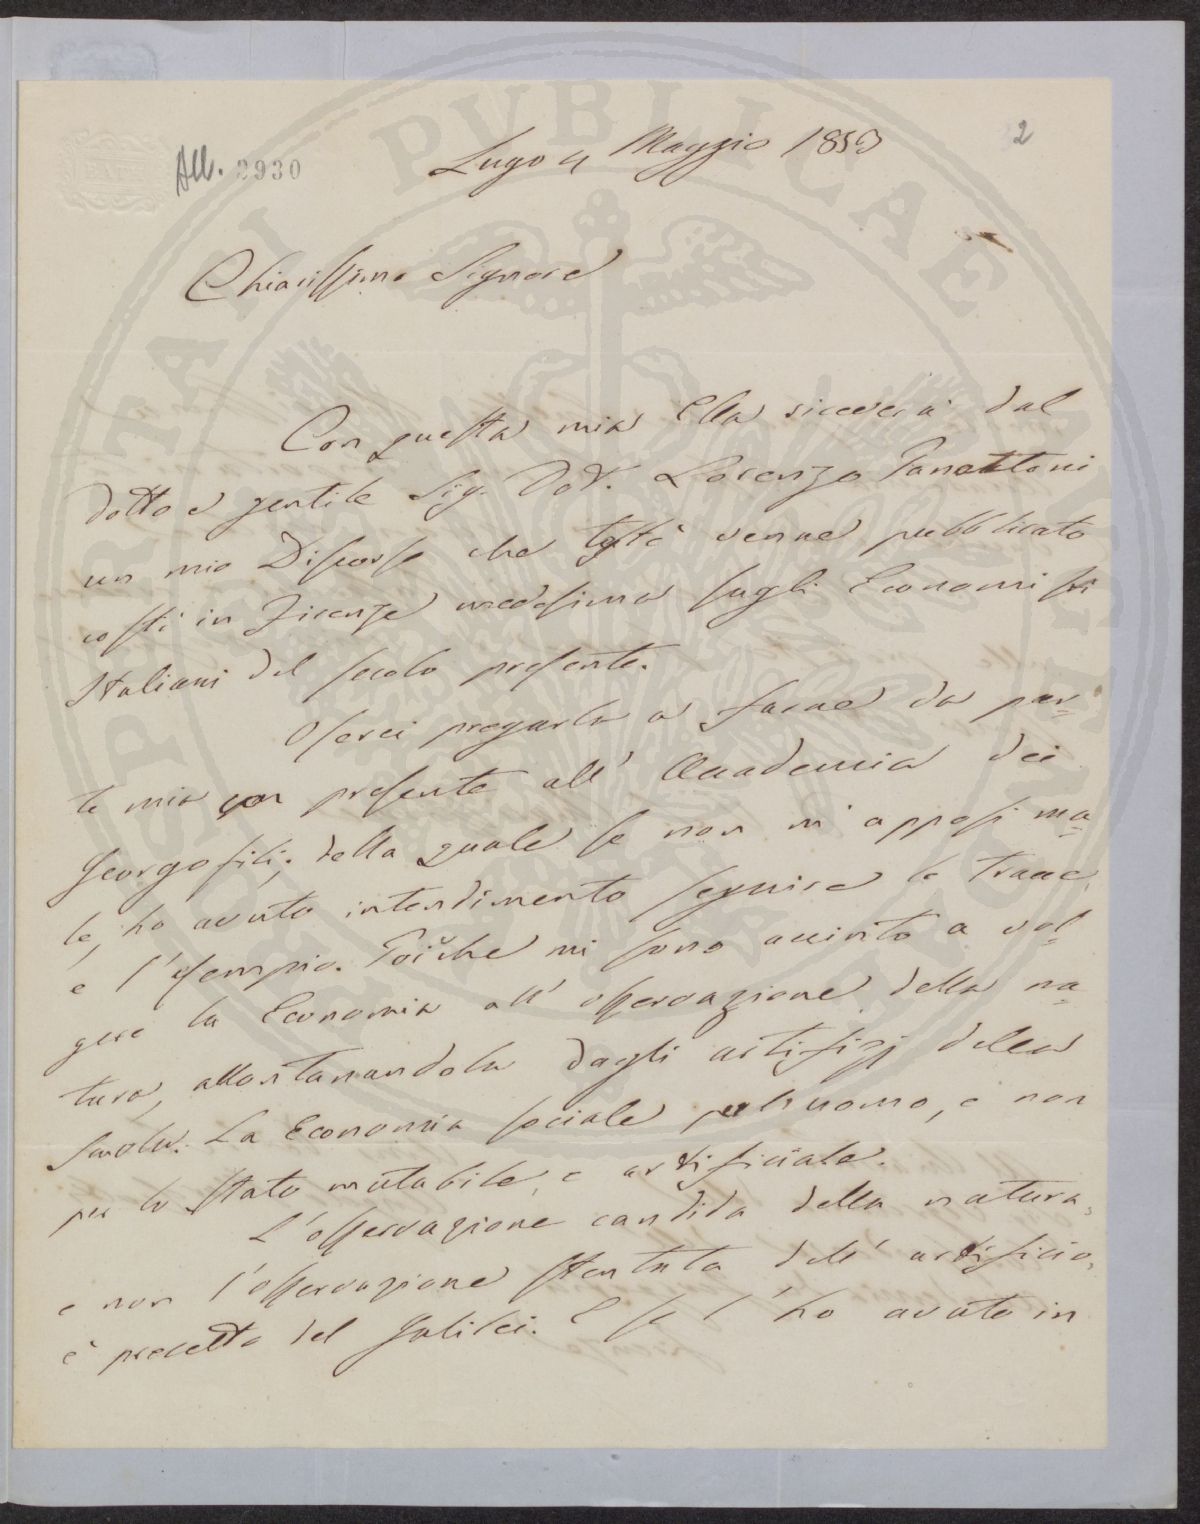 All. 3930
2
Lugo 4 Maggio 1853
Chiarissimo Signore
Con questa mia Ella riceverà dal
dotto e gentile Sig. Dot. Lorenzo Panattoni
un mio Discorso che testè venne pubblicato
costì in Firenze medesima sugli Economisti
Italiani del secolo presente.
Oserei pregarla a farne da par-
te mia presente all' Accademia dei
Georgofili; della quale se non m' apposi ma-
le, ho avuto intendimento seguire le tracce,
e l'esempio. Poichè mi sono accinto a vol-
gere la Economia all' osservazione della na-
tura, allontanandola dagli artifizj della
scuola. La Economia sociale è per l'uomo, e non
per lo stato mutabile, e artificiale.
L'osservazione candida della natura,
e non l'osservazione stentata dell' artificio,
è precetto del Galilei. E se l' ho avuto in
PVBLICAE